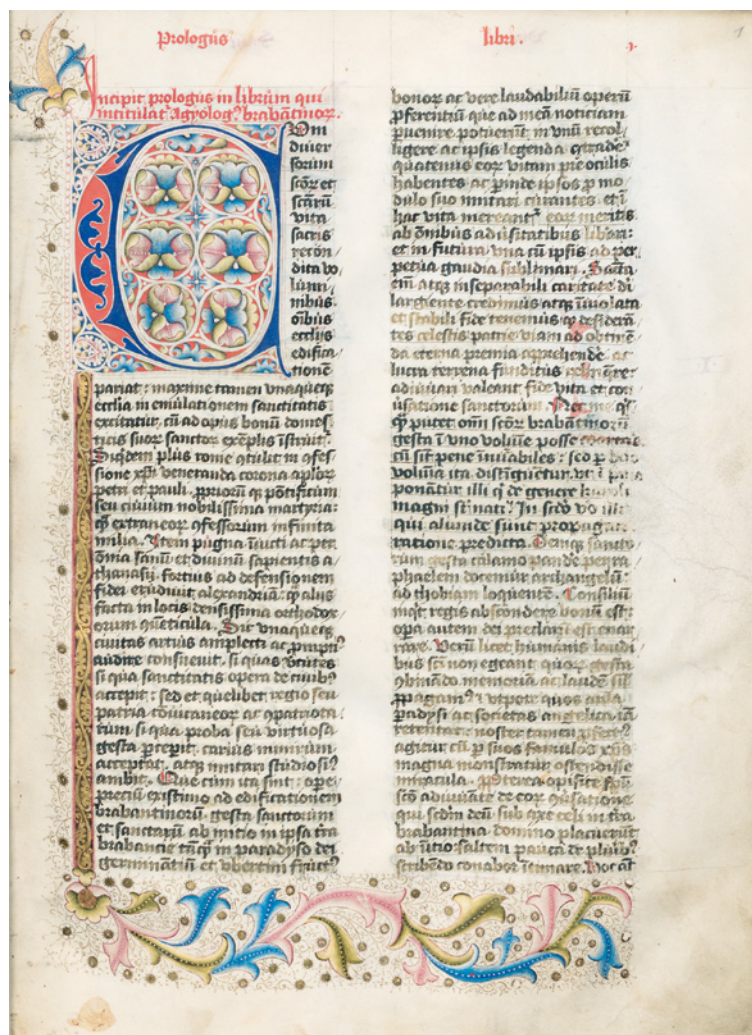 Prologus
libri.
1
Incipit prologus in librum qui
intitulat᷑ Agyologꝰ brabantinoꝝ.
Cum
diuer
sorum
scōꝝ et
scāꝝ
vita
sacris
recōn
dita vo
lumi
nibus
oībus
ecclijs
edifica
tionē
pariat : maxime tamen vnaqueqꝫ
ecclīa in emulationem sanctitatis
excitatur, cū ad opus bonū domes
ticis suoꝝ sanctoꝝ exēplis īstruit᷑.
Siqdem plus rome
sione xp̄i veneranda corona
petri et pauli
seu ciuium nobilissima martyria :
ꝙ̄ extraneoꝝ ꝯfessorum infinita
milia. Item pugna īuicti ac
omīa sanū et diuinū sapientis a
thanasij, fortius ad defensionem
fidei erudiuit alexandriā : ꝙ̄ alijs
facta in locis densissima orthodox
orum ꝯuēticula. Sic vnaqueqꝫ
ciuitas artius amplecti ac
audire consueuit, si quas
si qua sanctitatis opera de ciuibꝰ
accepit : sed et quelibet regio seu
patria
rum si qua proba seu virtuosa
gesta ꝑcepit, carius nimirum
acceptat, atqꝫ imitari studiosiꝰ
ambit. Que cum ita sint : ope
precium existimo ad edificationem
brabantinorū, gesta sanctorum
et sanctarū ab initio in ipsa tr̄a
brabancie tāqꝫ in paradyso dei
germinātiū et vbertim
bonoꝝ ac vere laudabiliū operū
ꝓferentiū que ad meā noticiam
ꝑuenire potuerūt in vnū recol
ligere ac ipsis legenda
quatenus eoꝝ vitam pre oculis
habentes ac proinde ipsos ꝓ mo
dulo suo imitari curantes et ī
hac vita mereant᷑ eoꝝ meritis
ab oīmbus aduersitatibus liberari
et in futura vna cū ipsis ad per
petua gaudia sublimari. Sancta
em̄ atqꝫ inseparabili caritate
largiente credimus atqꝫ īuiolata
et stabili fide tenemus ꝙ desiderā
tes celestis patrie viam ad obtinē
da eterna premia apprehendē ac
lucra terrena funditus
adiuuari valeant fide vita et con
uersatione sanctorum. Nec me
ꝙ putet oīm scōꝝ brabātinorū
gesta ī vno volumīe posse
cū sit pene īnūabiles : sed ꝑ duo
volumīa ita distīguetur, vt ī
ponātur illi qͥ de genere karoli
magni sūt nati. In scd̄o vo
qui aliunde sunt
ratione predicta. Deniqꝫ sancto
rum gesta calamo pandē per ra
phaelem docemur archangelū :
ad thobiam loquentē. Consiliū
inqͥt regis abscondere bonū est :
opa autem dei
rare. Verū licet humanis laudi
bus scī non egeant quoꝝ gesta
memoriā ac laudē
ꝓpagamꝰ : vtpote quos aula
paradysi ac societas angelica iā
retentat : noster tamen
agitur cū ꝑ suos famulos xp̄s
magna monstratur ostendisse
miracula. Pꝓterea opifice spū
scō adiuuāte de eoꝝ ꝯūsatione
qui scd̄m deū sub axe celi in tr̄a
brabantina domino placuerūt
ab initio saltem pauca de pluribꝰ
scribendo conabor